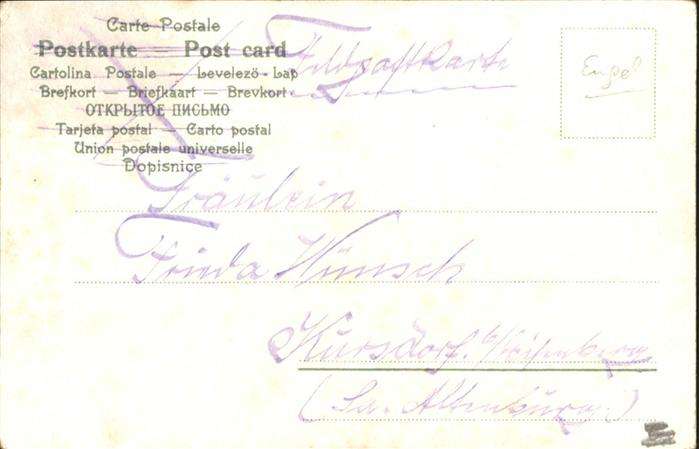 Carte Postale
Postkarte — Post card
Cartolina Postale — Levelező-Lap
Brefkort — Briefkaart — Brevkort
ОТКРЫТОЕ ПИСЬМО
Tarjeta postal — Carto postal
Union postale universelle
Dopisnice
Feldpostkarte
Engel
Fräulein
Frieda Wünsch
Kursdorf b/Eisenberg
(Sa. Altenburg.)